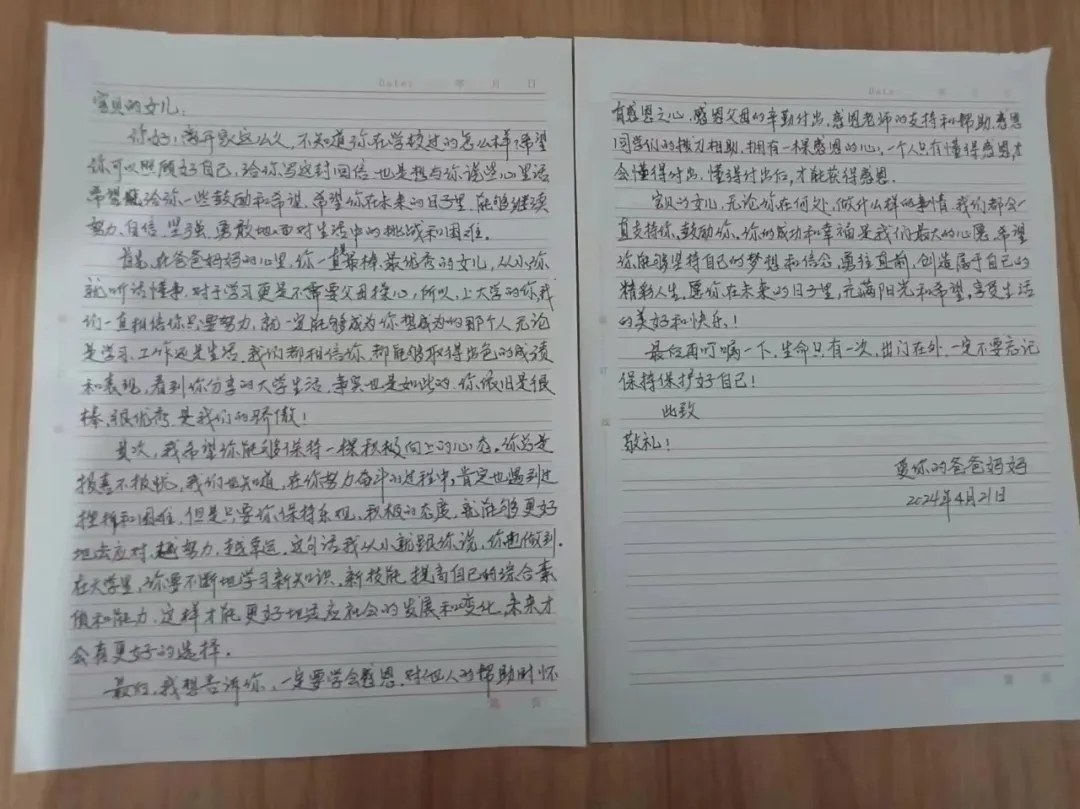 Date: 年 月 日
宝贝的女儿:
你好,离开家这么久,不知道你在学校过的怎么样?希望
你可以照顾好自己,给你写这封回信,也是想与你说些心里话
希望能给你一些鼓励和希望。希望你在未来的日子里,能够继续
努力、自信、坚强、勇敢地面对生活中的挑战和困难。
首先,在爸爸妈妈的心里,你一直是最棒、最优秀的女儿,从小你
就听话懂事,对于学习更是不需要父母操心,所以,上大学的你我
们一直相信你只要努力,就一定能够成为你想成为的那个人,无论
是学习、工作还是生活,我们都相信你,都能够取得出色的成绩
和表现,看到你分享的大学生活,事实也是如此的,你依旧是很
棒、很优秀,是我们的骄傲!
其次,我希望你能够保持一棵积极向上的心态。你总是
报喜不报忧,我们也知道,在你努力奋斗的过程中,肯定也遇到过
挫折和困难,但是只要你保持乐观、积极的态度,就能够更好
地去应对,越努力,越幸运,这句话我从小就跟你说,你也做到。
在大学里,你要不断地学习新知识、新技能,提高自己的综合素
质和能力,这样才能更好地适应社会的发展和变化,未来才
会有更好的选择。
最后,我想告诉你,一定要学会感恩,对他人的帮助时怀
Date: 年 月 日
有感恩之心,感恩父母的辛勤付出,感恩老师的支持和帮助,感恩
同学们的拔刀相助,拥有一棵感恩的心,一个人只有懂得感恩,才
会懂得付出,懂得付出后,才能获得感恩。
宝贝的女儿,无论你在何处,做什么样的事情,我们都会一
直支持你、鼓励你。你的成功和幸福是我们最大的心愿,希望
你能够坚持自己的梦想和信念,勇往直前,创造属于自己的
精彩人生。愿你在未来的日子里,充满阳光和希望,享受生活
的美好和快乐!
最后再叮嘱一下,生命只有一次,出门在外,一定不要忘记
保持保护好自己!
此致
敬礼!
爱你的爸爸妈妈
2024年4月21日